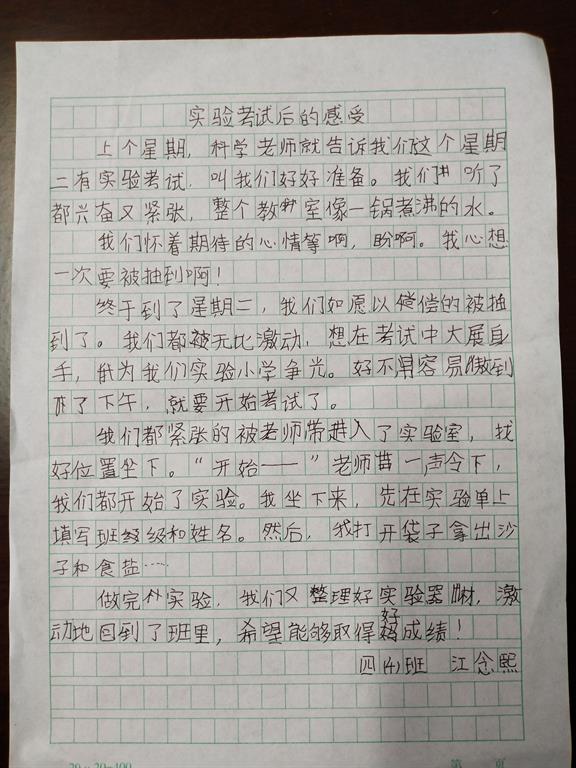 实验考试后的感受
上个星期，科学老师就告诉我们这个星期
二有实验考试，叫我们好好准备。我们听了
都兴奋又紧张，整个教室像一锅煮沸的水。
我们怀着期待的心情等啊，盼啊。我心想
一次要被抽到啊！
终于到了星期二，我们如愿以偿的被抽
到了。我们都被无比激动，想在考试中大展身
手，为我们实验小学争光。好不容易熬到
了下午，就要开始考试了。
我们都紧张的被老师带进入了实验室，找
好位置坐下。“开始——”老师一声令下，
我们都开始了实验。我坐下来，先在实验单上
填写班级和姓名。然后，我打开袋子拿出沙
子和食盐……
做完实验，我们又整理好实验器材，激
动地回到了班里，希望能够取得好成绩！
四(4)班 江念熙
20×20=400 第 页